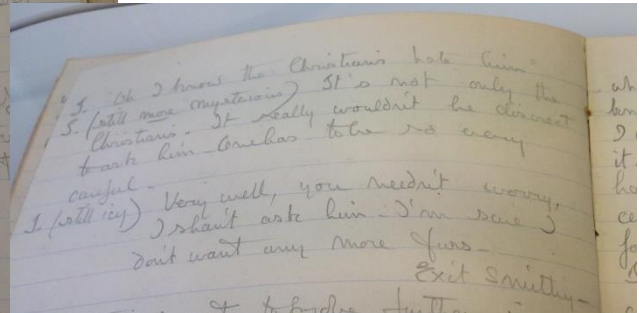 I. Oh I know the Christians hate him
S. (still more mysterious) It's not only the
Christians. It really wouldn't be discreet
to ask him - One has to be so
careful -
I. (still icy) Very well, you needn't worry,
I shan't ask him - I'm sure I
don't want any more furs -
Exit Smithy -
wh
I
it
ha
ce
fo